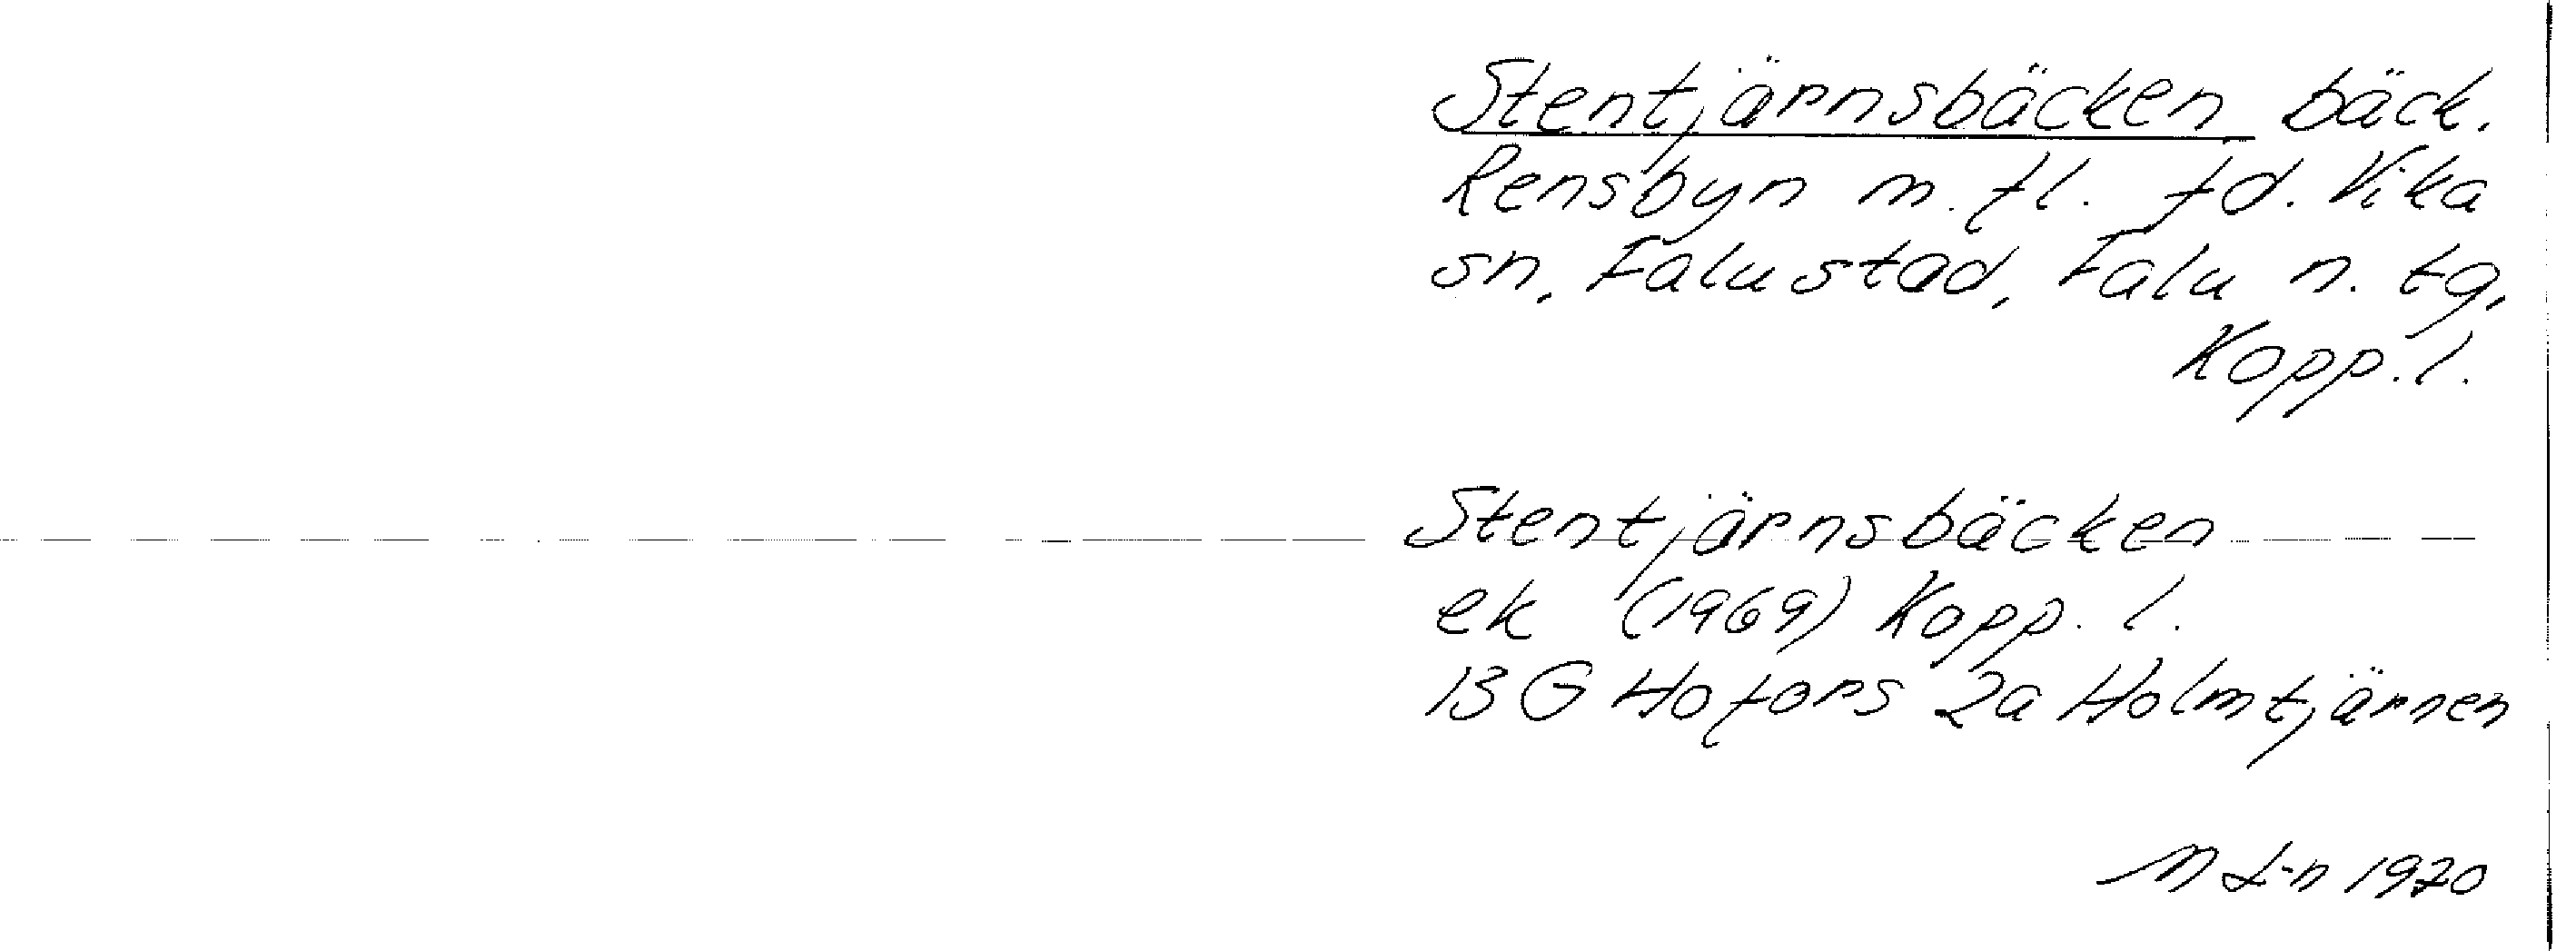 Stentjärnsbäcken bäck.
Rensbyn m.fl. f.d. Vika
sn, Falu stad, Falu n. tg,
Kopp. l.
Stentjärnsbäcken
ek (1969) Kopp. l.
13 G Hofors 2a Holmtjärnen
M L-n 1970